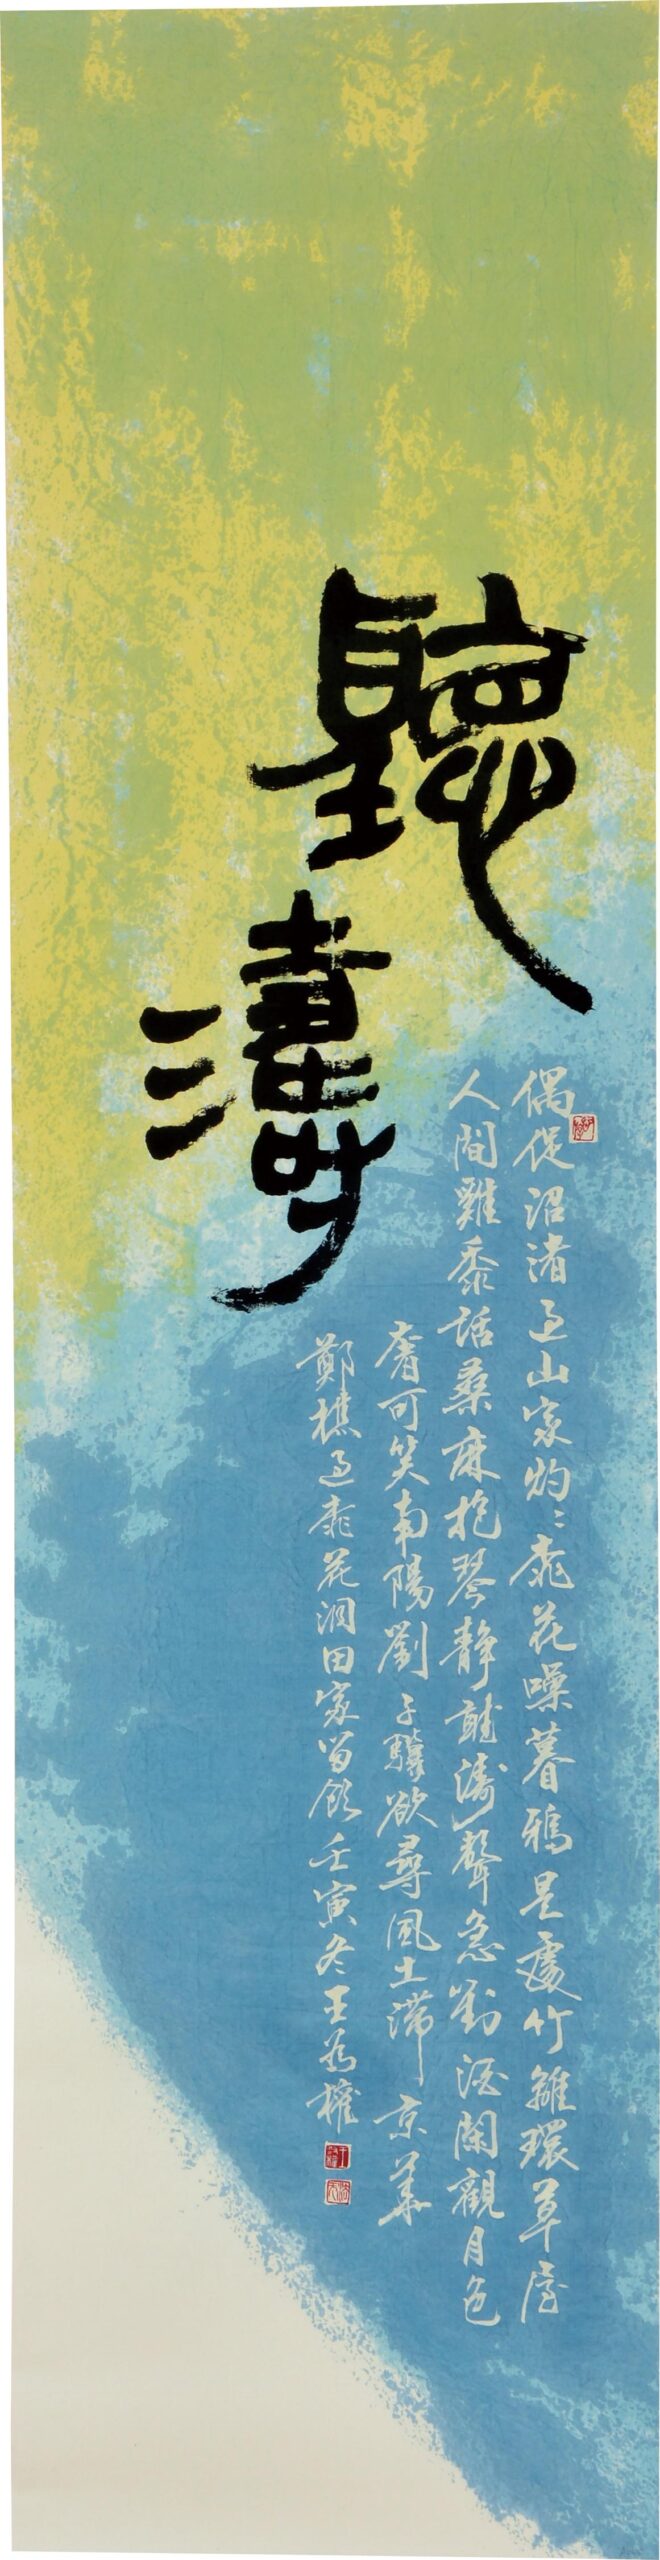 聽濤
偶從沼渚過山家灼〻桃花噪暮鴉是處竹籬環草屋
人間雞黍話桑麻抱琴靜聽濤聲急對酒閑觀月色
奢可笑南陽劉子驥欲尋風土滯京華
鄭樵過桃花洞田家留飲壬寅冬王